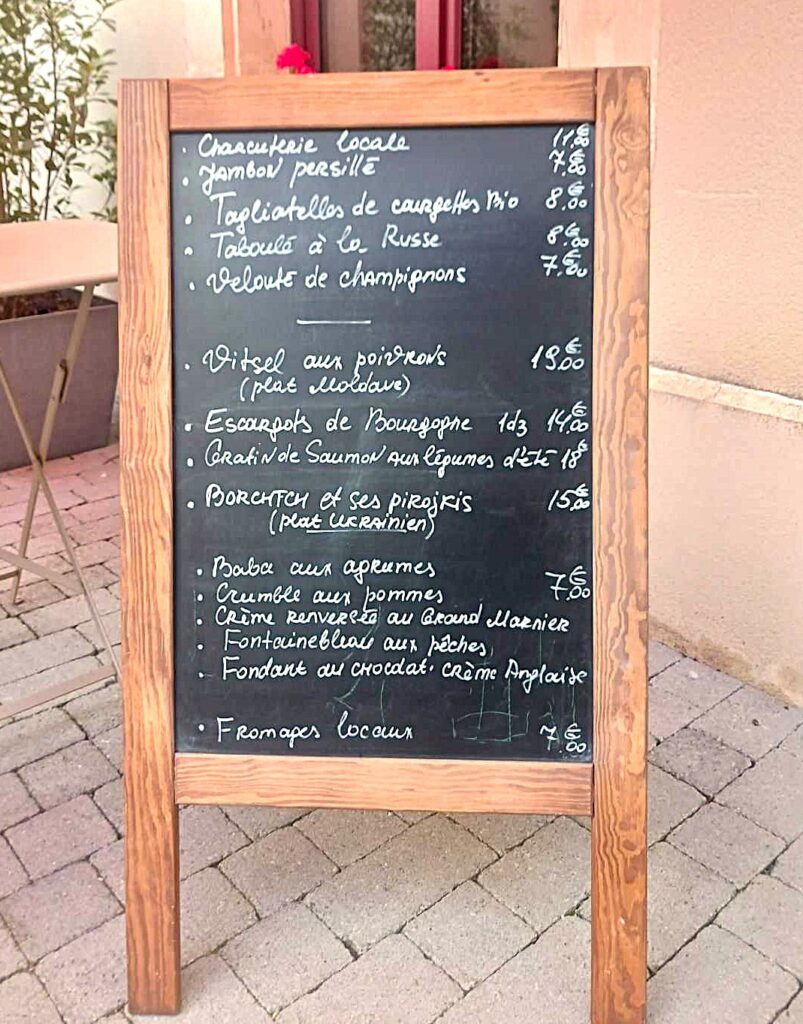 . Charcuterie locale 11€.00
. Jambon persillé 7€.00
. Tagliatelles de courgettes Bio 8€.00
. Taboulé à la Russe 8€.00
. Velouté de champignons 7€.00
. Vitsel aux poivrons 19€.00
(plat Moldave)
. Escargots de Bourgogne 1dz 14€.00
. Gratin de Saumon aux légumes d'été 18€
. BORCHTCH et ses pirojkis 15€.00
(plat UKRAINien)
. Baba aux agrumes
. Crumble aux pommes 7€.00
. Crème renversée au Grand Marnier
. Fontainebleau aux pêches
. Fondant au chocolat. crème Anglaise
. Fromages locaux 7€.00